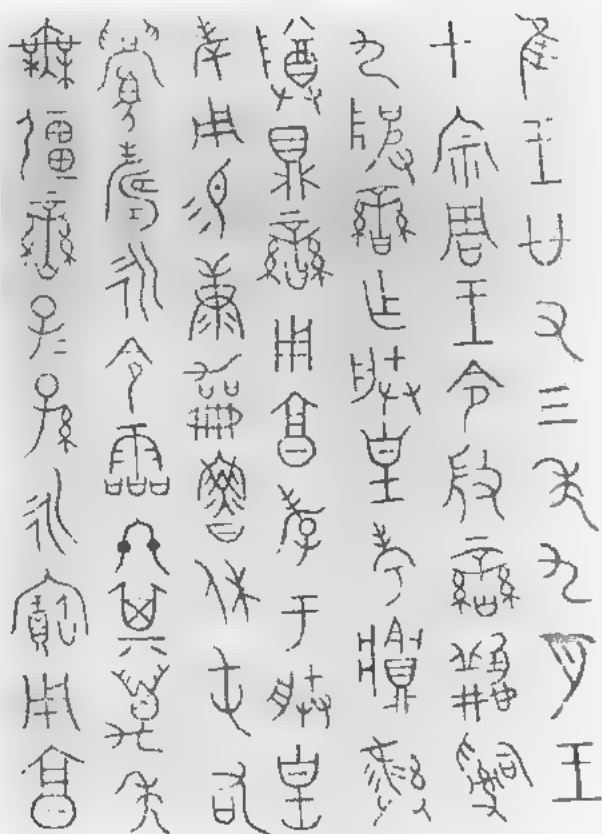 隹王廿又三年九月王
才宗周王令微䜌𤔲
九陂䜌乍朕皇考𩰫彝
尊鼎䜌用享孝于朕皇
考用易康魯休屯右
眉壽永令霝冬其萬年
無疆䜌子孫永寶用享